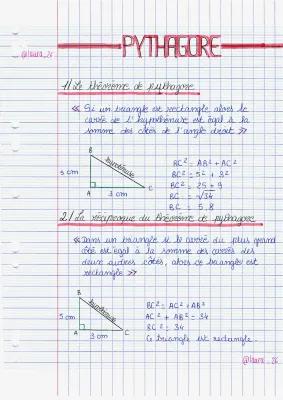 PYTHAGORE
@laura_26
1/ Le théorème de pythagore
« Si un triangle est rectangle alors le
carré de l'hypothénuse est égal à la
somme des côtés de l'angle droit »
B
hypoténuse
5 cm
A
3 cm
C
BC² = AB² + AC²
BC² = 5² + 3²
BC² = 25 + 9
BC = √34
BC = 5,8
2/ La réciproque du théorème de pythagore
« Dans un triangle si le carré du plus grand
côté est égal à la somme des carrés des
deux autres côtés, alors ce triangle est
rectangle »
B
hypoténuse
5 cm
A
3 cm
C
BC² = AC² + AB²
AC² + AB² = 34
BC² = 34
Ce triangle est rectangle.